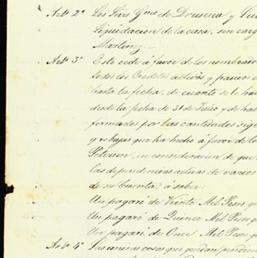 Artº 2º Los Sres Gme de Drusina y
Liquidacion de la casa, sin carg
Martiny
Artº 3º Este cede á favor de los nombrados
todos los Creditos activos y pasivos
hasta la fecha, de cuanto se le ha
desde la fecha de 31 de Julio, y de ha
formados por las cantidades sig
y rebajas que ha hecho á favor de lo
Petersen, en consideracion de que
las dependencias activas de varios
de su cuenta, á saber
Un pagaré de Veinte Mil Pesos
Un pagaré de Quince Mil Pesos
Un pagaré de Once Mil Pesos
Artº 4º Las unicas cosas que quedan pendien